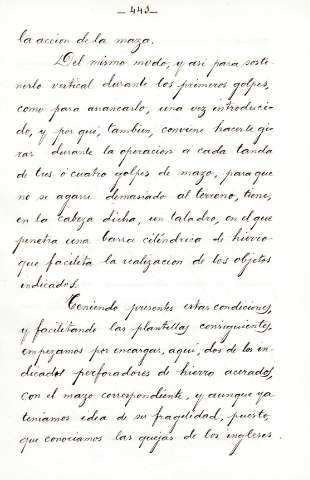 — 443 —
la acción de la maza.
Del mismo modo, y así para soste-
nerlo vertical durante los primeros golpes,
como para arrancarlo, una vez introduci-
do, y por qué, tambien, conviene hacerle gi-
rar durante la operacion a cada tanda
de tres ó cuatro golpes de mazo, para que
no se agarre demasiado al terreno, tiene,
en la cabeza dicha, un taladro, en el que
penetra una barra cilíndrica de hierro
que facilita la realizacion de los objetos
indicados.
Teniendo presentes estas condiciones,
y facilitando las plantillas consiguientes,
empezamos por encargar, aquí, dos de los in-
dicados perforadores de hierro acerado,
con el mazo correspondiente, y aunque ya
teniamos idea de su fragilidad, puesto,
que conociamos las quejas de los ingleses.